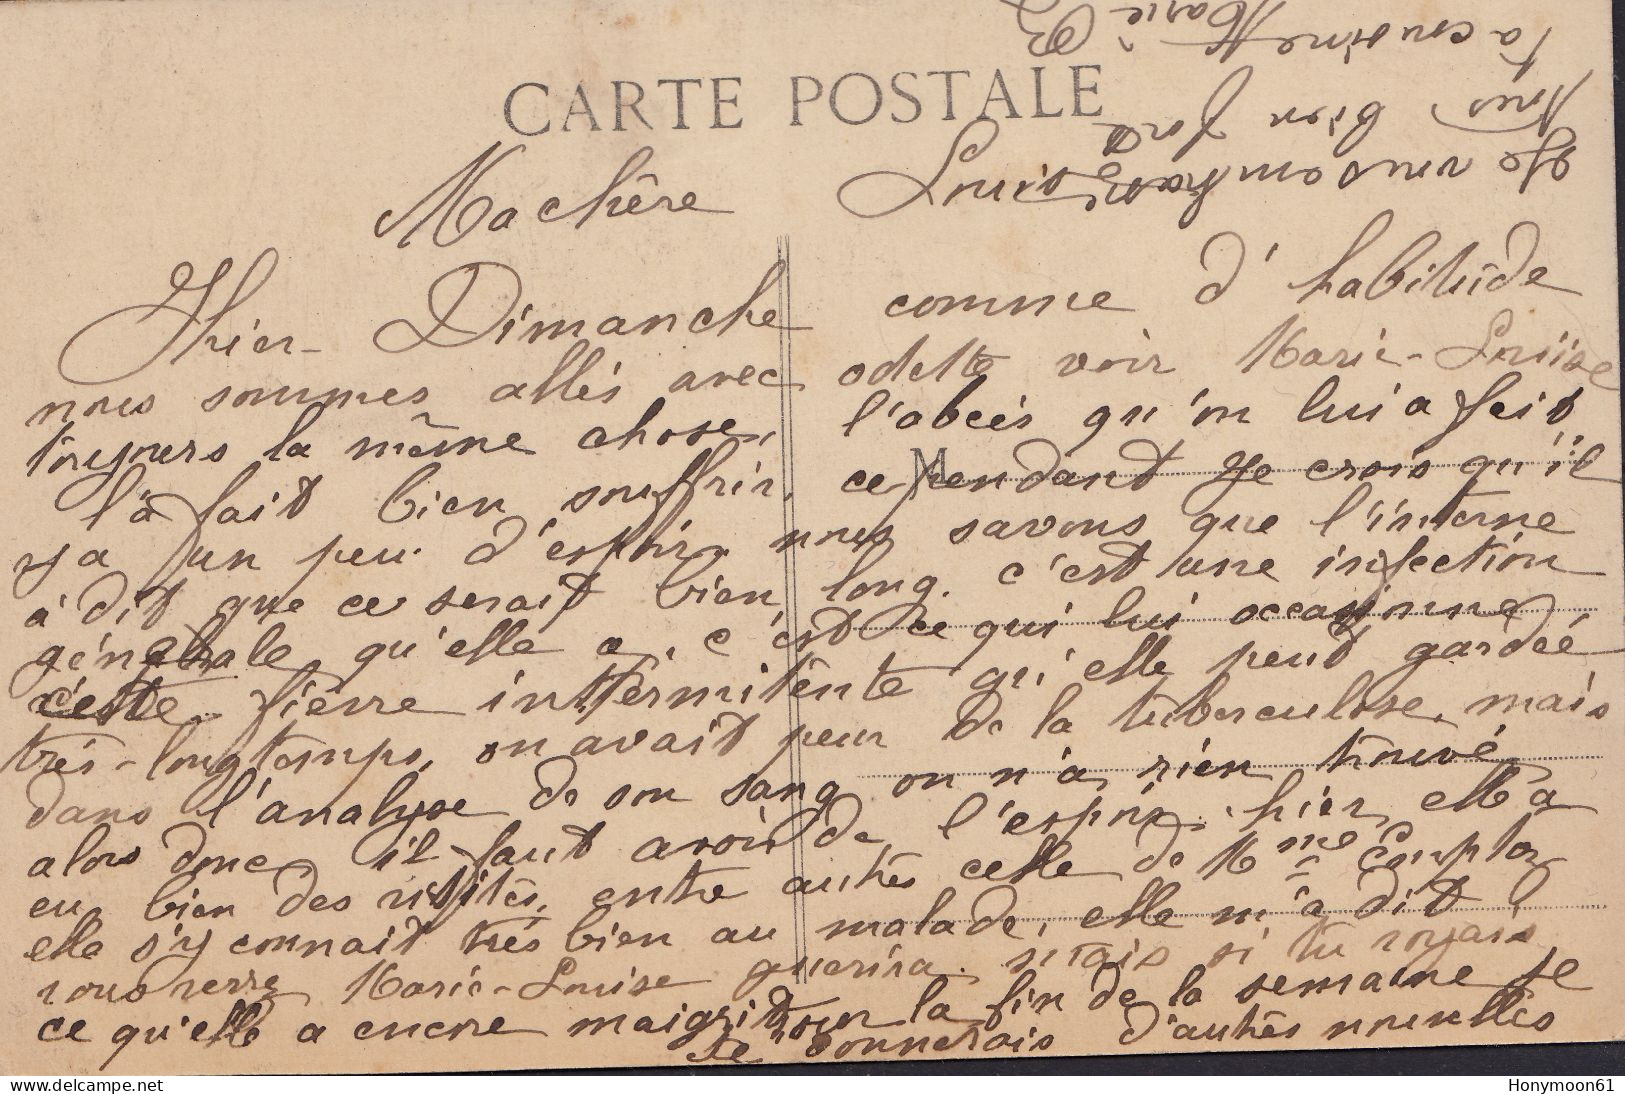 CARTE POSTALE
Ma chêre Louise
Hier Dimanche comme d'habitude
nous sommes allés avec odette voir Marie-Louise
toujours la même chose, l'abcés qu'on lui a fait
l'à fait bien souffrir, cependant Je crois qu'il
M
y a un peu d'espoir, nous savons que l'interne
à dit que ce serait bien long. c'est une infection
générale qu'elle a, c'est ce qui lui occasionne
cette fièvre intérmitênte qu'elle peut gardée
très-longtemps, on avait peur de la tuberculose, mais
dans l'analyse de son sang on n'a rien trouvé
alors donc il faut avoir de l'espoir. hier elle a
eu bien des visites, entre autrês celle de Mme
elle s'y connait très bien au malade, elle m'a dit
vous verré Marie-Louise guerira. mais si tu voyais
ce qu'elle a encore maigrit pour la fin de la semaine je
te donnerais d'autrês nouvelles
Je vous embrasse
tous bien fort
Ta cousine Marie B
Honymoon61
delcampe.net